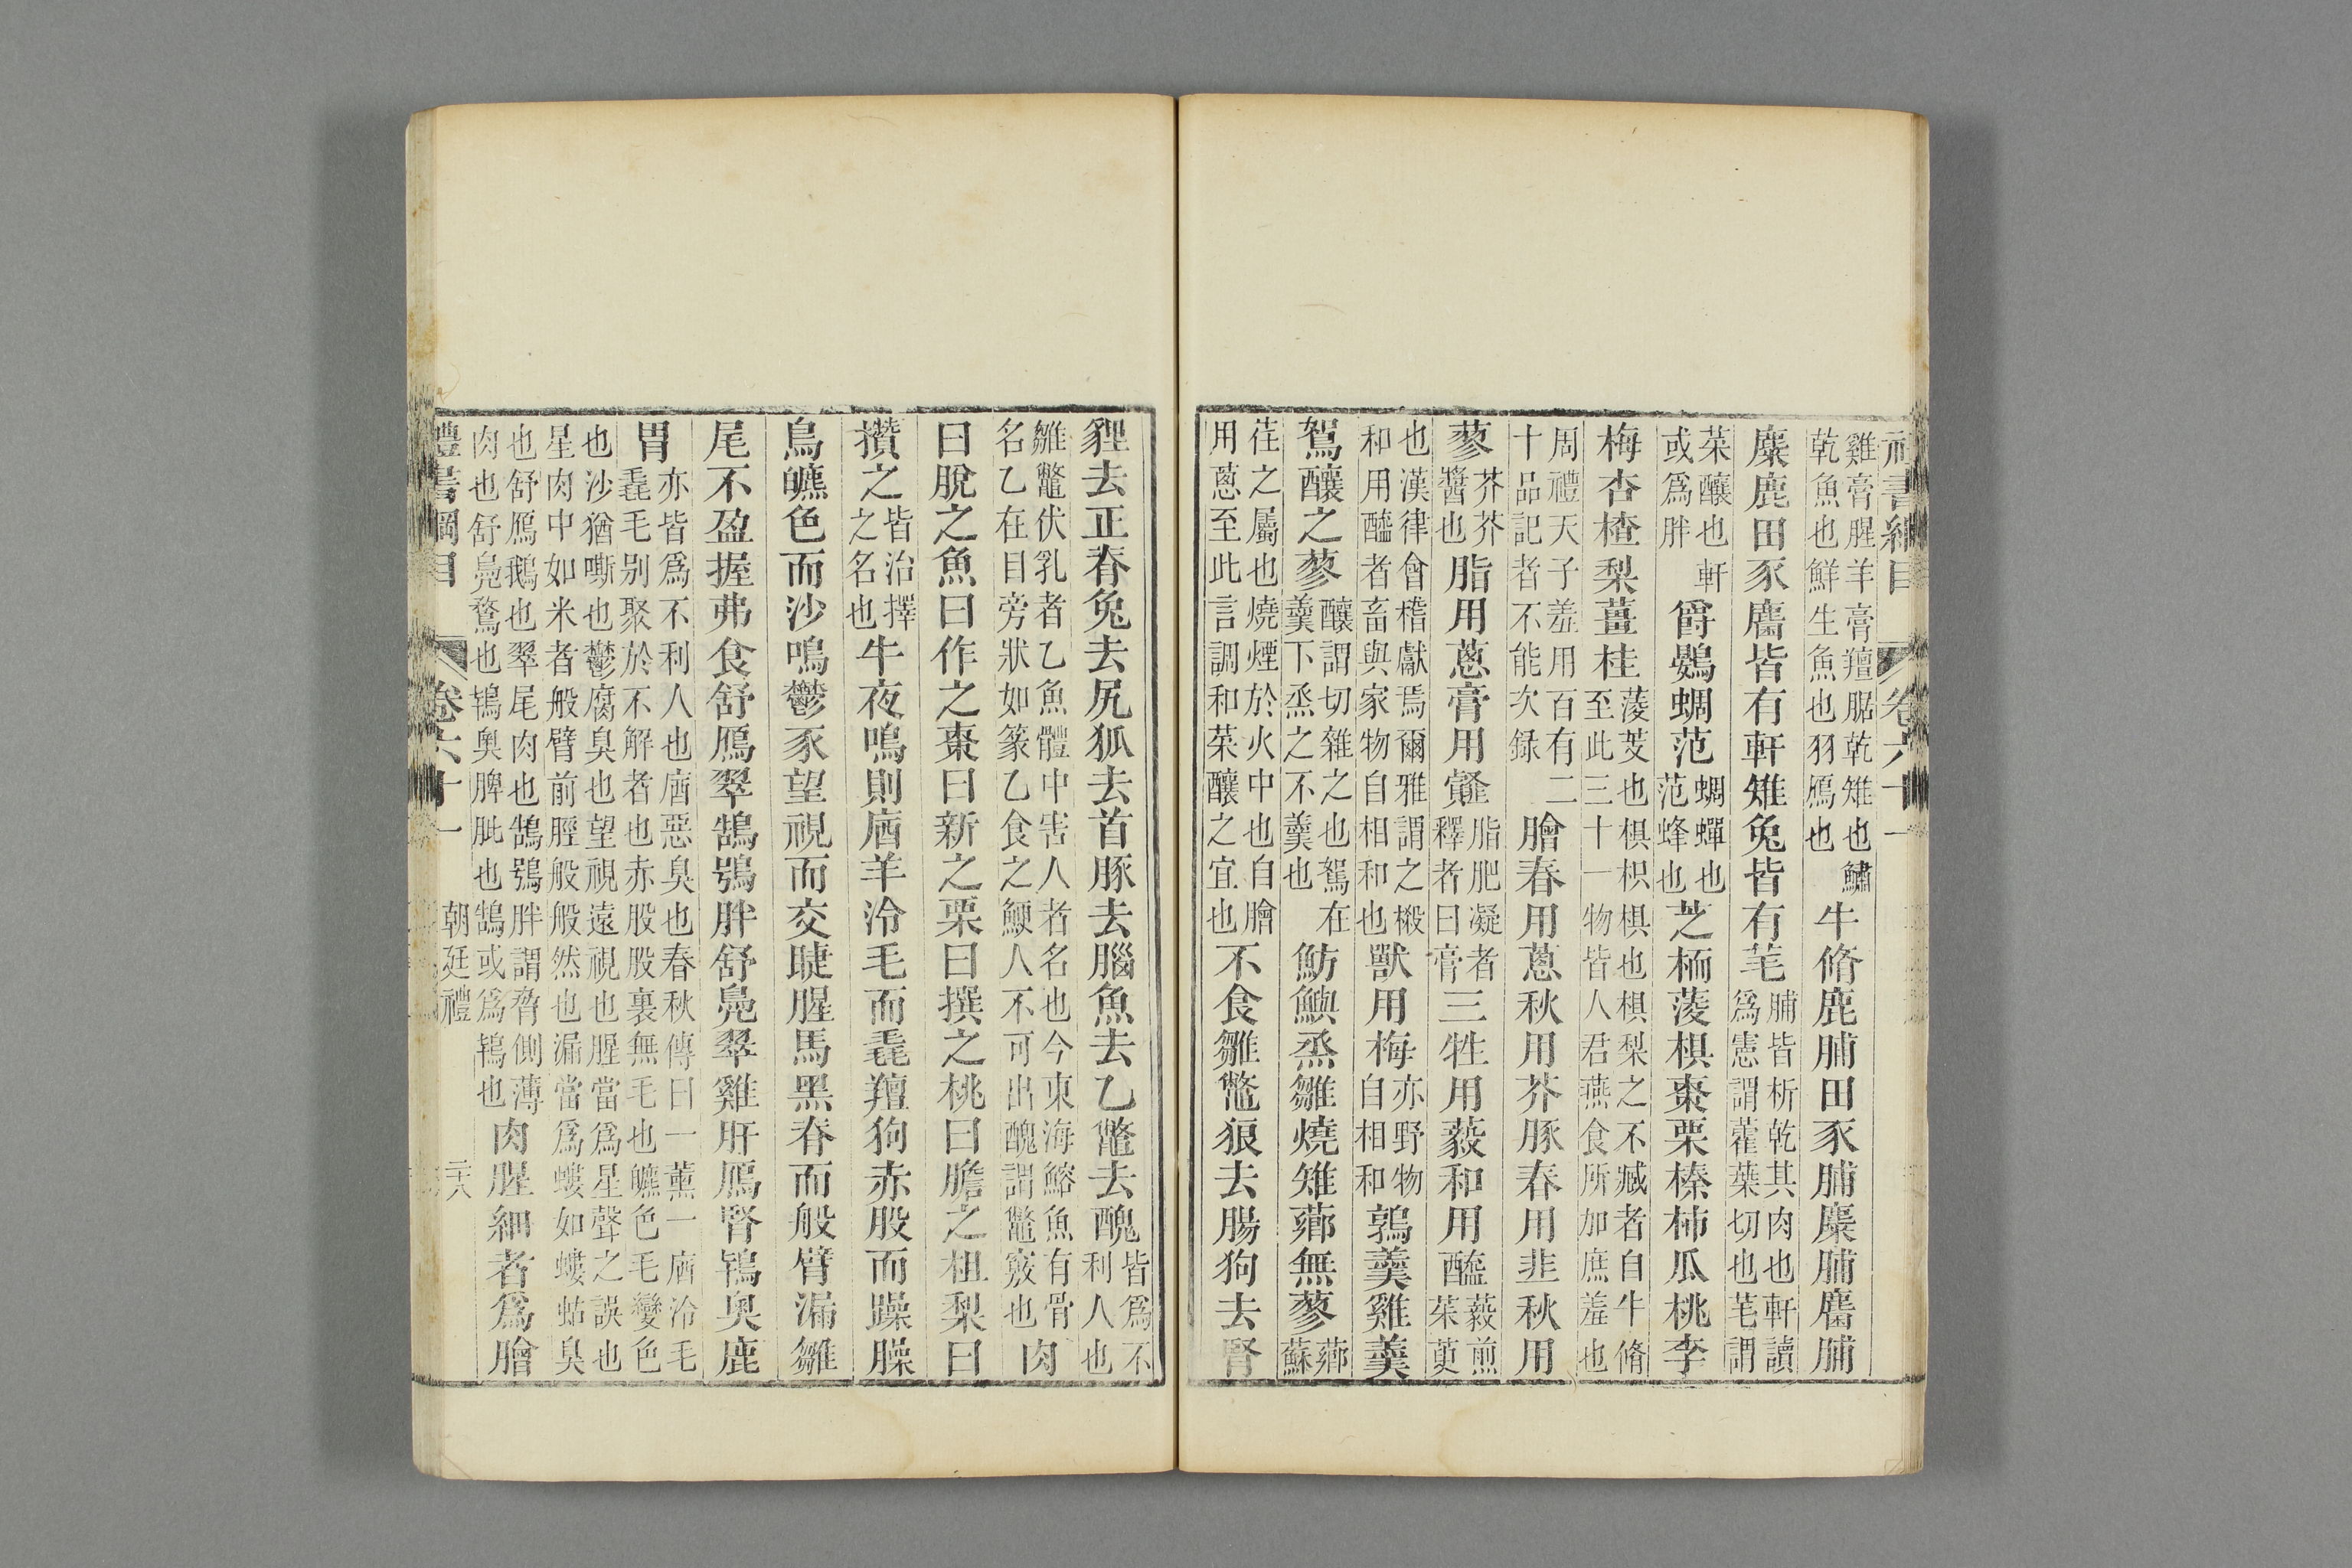 禮書綱目 卷六十一
雞膏腥羊膏羶腒乾雉也鱐乾魚也鮮生魚也羽鴈也牛脩鹿脯田豕脯麋脯麕脯
麋鹿田豕麕皆有軒雉兔皆有芼脯皆析乾其肉也軒讀爲憲謂藿葉切也芼謂
菜釀也軒或爲胖爵鷃蜩范蜩蟬也范蜂也芝栭蔆椇棗栗榛柿瓜桃李
梅杏楂梨薑桂蔆芰也椇枳椇也椇梨之不臧者自牛脩至此三十一物皆人君燕食所加庶羞也
周禮天子羞用百有二十品記者不能次録膾春用蔥秋用芥豚春用韭秋用
蓼芥芥醬也脂用蔥膏用薤脂肥凝者釋者曰膏三牲用藙和用醯藙煎茱萸
也漢律會稽獻焉爾雅謂之樧和用醯者畜與家物自相和也獸用梅亦野物自相和鶉羹雞羹
鴽釀之蓼釀謂切雜之也鴽在羹下烝之不羹也魴鱮烝雛燒雉薌無蓼薌蘇
荏之屬也燒煙於火中也自膾用蔥至此言調和菜釀之宜也不食雛鼈狼去腸狗去腎
貍去正脊兔去尻狐去首豚去腦魚去乙鼈去醜皆爲不利人也
雛鼈伏乳者乙魚體中害人者名也今東海鰫魚有骨名乙在目旁狀如篆乙食之鯁人不可出醜謂鼈竅也肉
曰脫之魚曰作之棗曰新之栗曰撰之桃曰膽之柤梨曰
攢之皆治擇之名也牛夜鳴則庮羊泠毛而毳羶狗赤股而躁臊
鳥皫色而沙鳴鬱豕望視而交睫腥馬黑脊而般臂漏雛
尾不盈握弗食舒鴈翠鵠鴞胖舒鳧翠雞肝鴈腎鴇奧鹿
胃亦皆爲不利人也庮惡臭也春秋傳曰一薰一庮泠毛毳毛别聚於不解者也赤股股裏無毛也皫色毛變色
也沙猶嘶也鬱腐臭也望視遠視也腥當爲星聲之誤也星肉中如米者般臂前脛般般然也漏當爲螻如螻蛄臭
也舒鴈鵝也翠尾肉也鵠鴞胖謂脅側薄肉也舒鳧鶩也鴇奧脾肶也鵠或爲鴇也肉腥細者爲膾
禮書綱目 卷六十一 朝廷禮 二十八